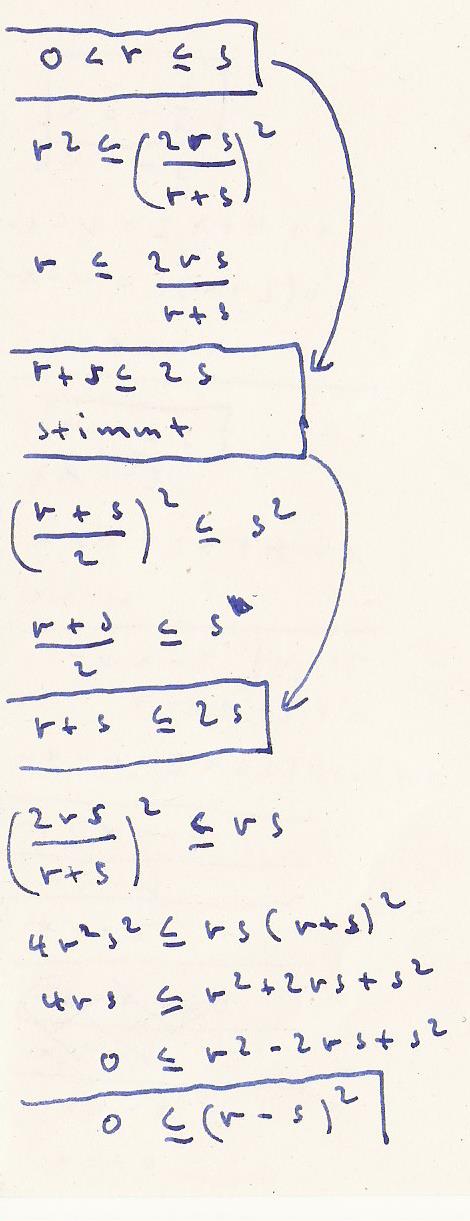 0 < r ≤ s
r² ≤ (2rs/(r+s))²
r ≤ 2rs/(r+s)
r+s ≤ 2s
stimmt
((r+s)/2)² ≤ s²
(r+s)/2 ≤ s
r+s ≤ 2s
(2rs/(r+s))² ≤ rs
4r²s² ≤ rs(r+s)²
4rs ≤ r²+2rs+s²
0 ≤ r²-2rs+s²
0 ≤ (r-s)²